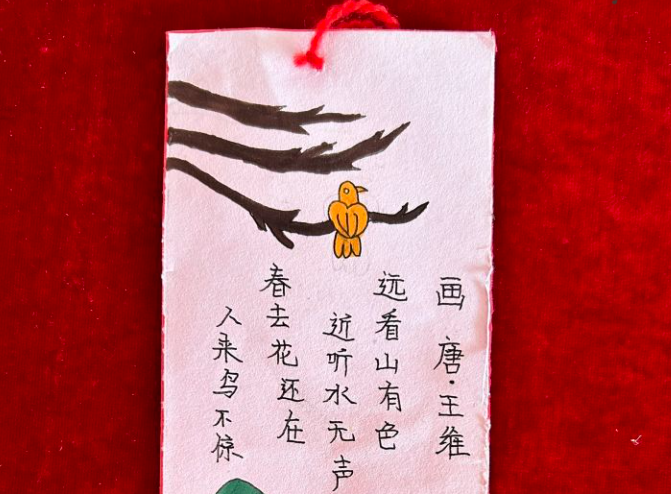 画 唐·王维
远看山有色
近听水无声
春去花还在
人来鸟不惊